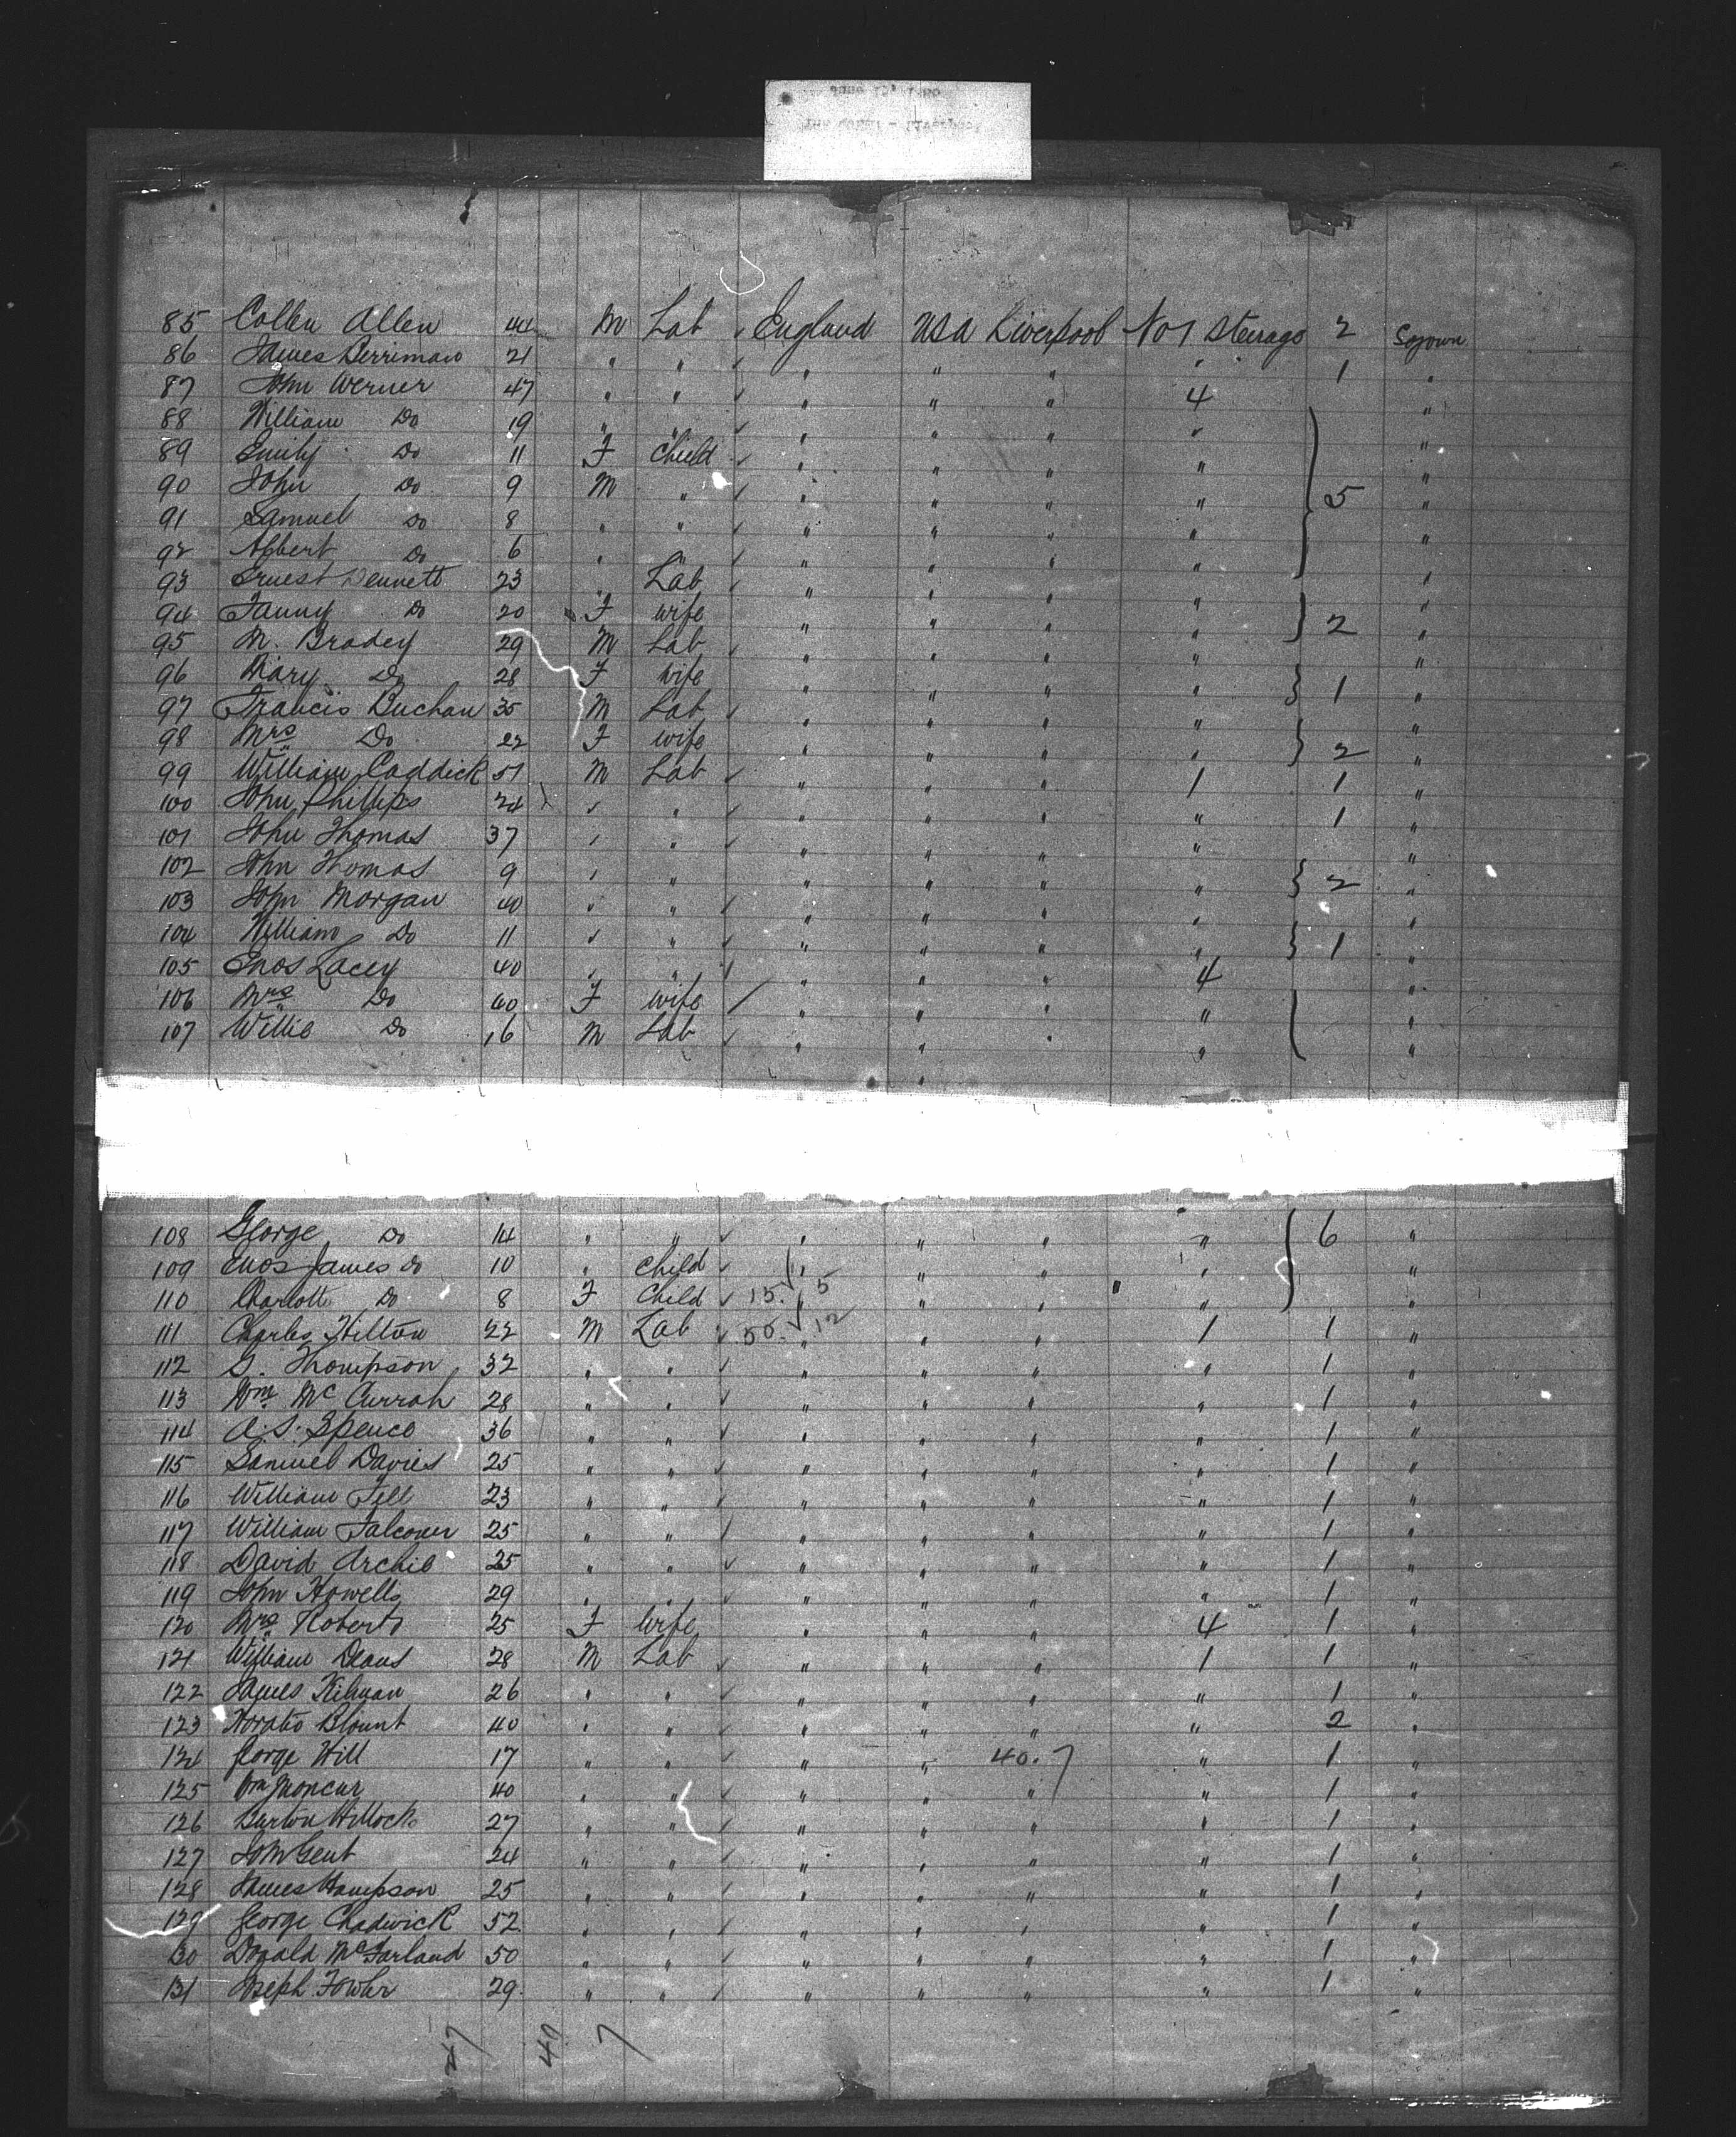 85 Collen Allen 44 M Lab ✓ England USA Liverpool No 1 Steerage 2 Sojourn
86 James Berriman 21 " " ✓ " " " " 1 "
87 John Werner 47 " " ✓ " " " 4 "
88 William Do 19 " " ✓ " " " " "
89 Emily Do 11 F Child ✓ " " " " "
90 John Do 9 M " ✓ " " " " } 5 "
91 Samuel Do 8 " " ✓ " " " " "
92 Albert Do 6 " ✓ " " " " "
93 Ernest Dennett 23 " Lab ✓ " " " " "
94 Fanny Do 20 F wife " " " " } 2 "
95 M. Bradey 29 M Lab ✓ " " " " "
96 Mary Do 28 F wife " " " " } 1 "
97 Francis Buchan 35 M Lab ✓ " " " " "
98 Mrs Do 22 F wife " " " " } 2 "
99 William Caddick 51 M Lab ✓ " " " 1 1 "
100 John Phillips 24 " " ✓ " " " " 1 "
101 John Thomas 37 " " ✓ " " " " "
102 John Thomas 9 " " " " " " } 2 "
103 John Morgan 40 " " ✓ " " " " "
104 William Do 11 " " ✓ " " " " } 1 "
105 Enos Lacey 40 " " ✓ " " " 4 "
106 Mrs Do 40 F wife ✓ " " " " "
107 Willie Do 16 M Lab ✓ " " " " "
108 George Do 14 " " ✓ " " " " } 6 "
109 Enos James Do 10 " Child ✓ " " " " "
110 Charlott Do 8 F Child ✓ 15. 5 " " " "
111 Charles Hilton 22 M Lab ✓ 55. 12 " " 1 1 "
112 G. Thompson 32 " " ✓ " " " " 1 "
113 Wm Mc Currah 28 " " ✓ " " " " 1 "
114 A. S. Spence 36 " " ✓ " " " " 1 "
115 Samuel Davies 25 " " ✓ " " " " 1 "
116 William Tell 23 " " ✓ " " " " 1 "
117 William Falconer 25 " " ✓ " " " " 1 "
118 David Archie 25 " " ✓ " " " " 1 "
119 John Howells 29 " " ✓ " " " " 1 "
120 Mrs Roberts 25 F Wife " " " 4 1 "
121 William Deans 28 M Lab ✓ " " " 1 1 "
122 James Kilman 26 " " ✓ " " " " 1 "
123 Horatio Blount 40 " " ✓ " " " " 2 "
124 George Hill 17 " " ✓ " " 40. 7 " 1 "
125 Wm Moncur 40 " " ✓ " " " " 1 "
126 Burton Hillock 27 " " ✓ " " " " 1 "
127 John Gent 24 " " ✓ " " " " 1 "
128 James Hampson 25 " " ✓ " " " " 1 "
129 George Chadwick 52 " " ✓ " " " " 1 "
130 Donald McFarland 50 " " ✓ " " " " 1 "
131 Joseph Fowler 29 " " ✓ " " " " 1 "
47 40 7